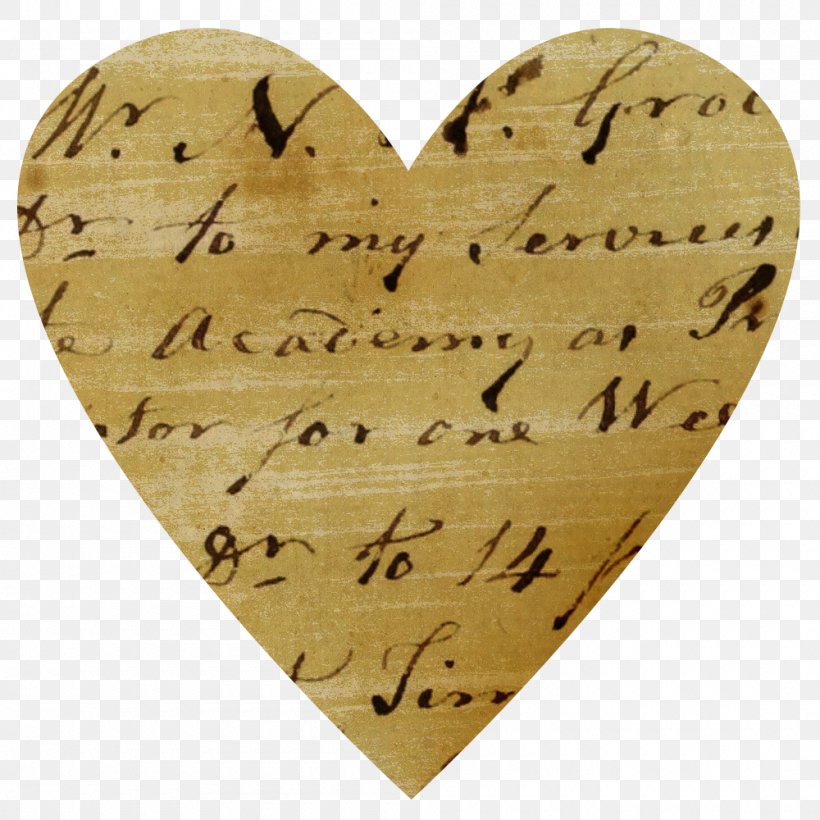 Mr. N. Gro
Dr to my Services
te Academy as Pr
ptor for one Wee
Dr to 14
Tim